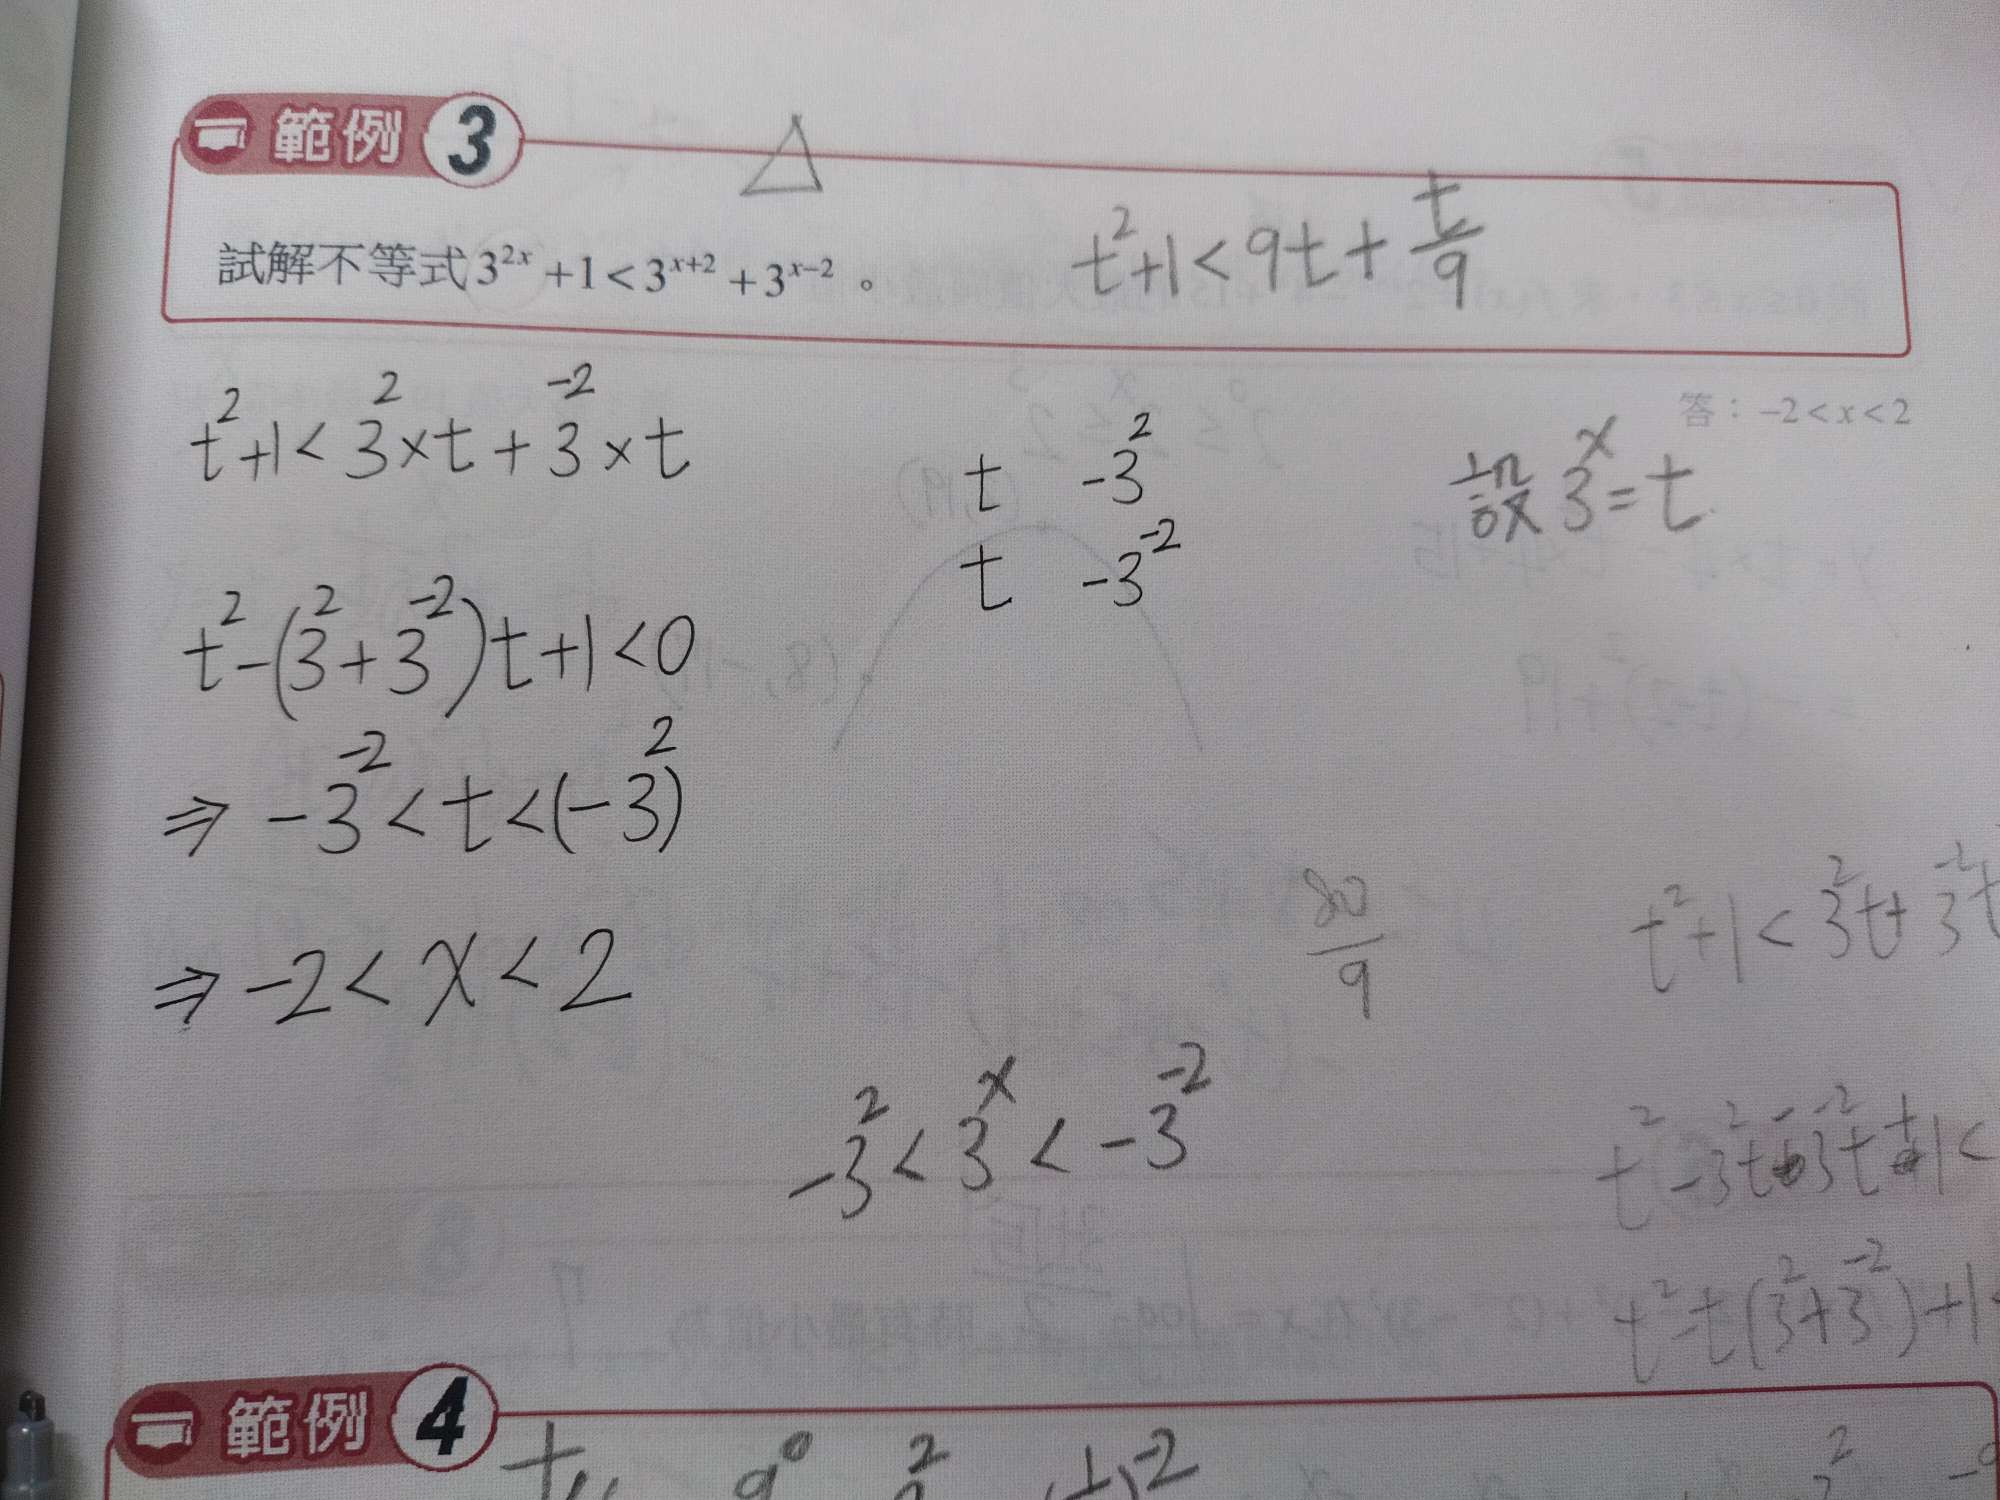 範例 3
△
試解不等式 3^{2x} + 1 < 3^{x+2} + 3^{x-2} 。
t^2+1 < 9t + \frac{t}{9}
答：-2 < x < 2
t^2+1 < 3^2 × t + 3^{-2} × t
t -3^2
t -3^{-2}
設 3^x = t
t^2-(3^2+3^{-2})t+1<0
⇒ -3^{-2} < t < (-3^2)
⇒ -2 < x < 2
\frac{80}{9}
t^2+1 < 3^2t+ 3^{-2}t
-3^2 < 3^x < -3^{-2}
t^2 -3^2t - 3^{-2}t +1 <
t^2 - t(3^2+3^{-2}) +1 <
範例 4